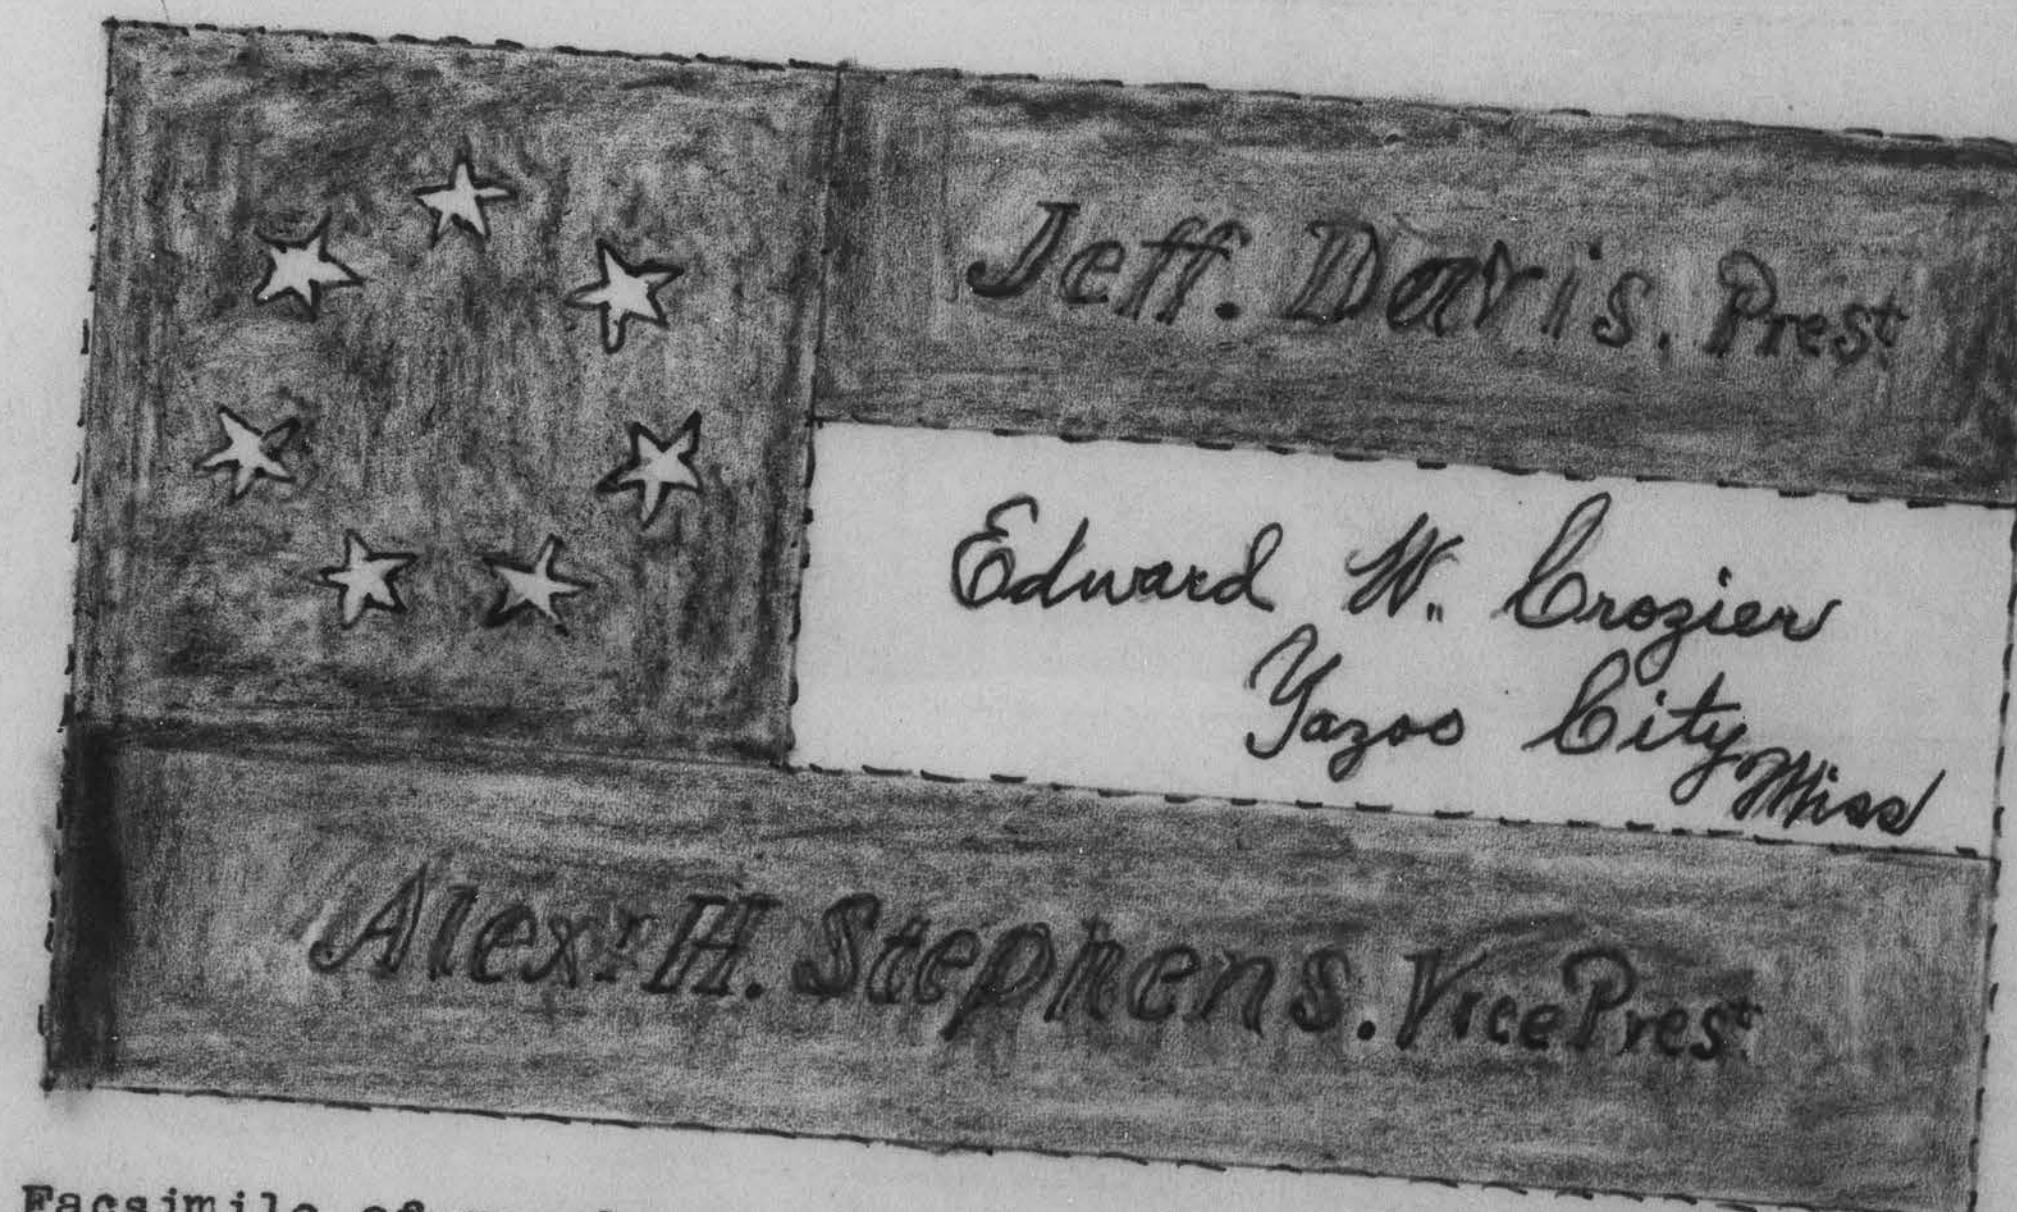 Jeff. Davis. Prest
Edward W. Crozier
Yazoo City
Miss
Alexr H. Stephens. Vice Prest
Facsimile of